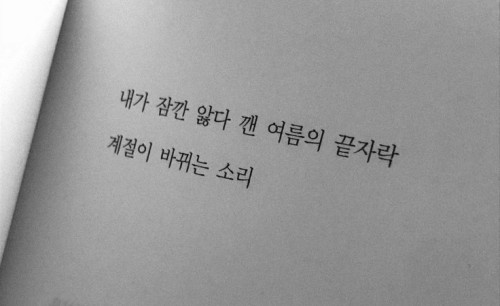 내가 잠깐 앓다 깬 여름의 끝자락
계절이 바뀌는 소리